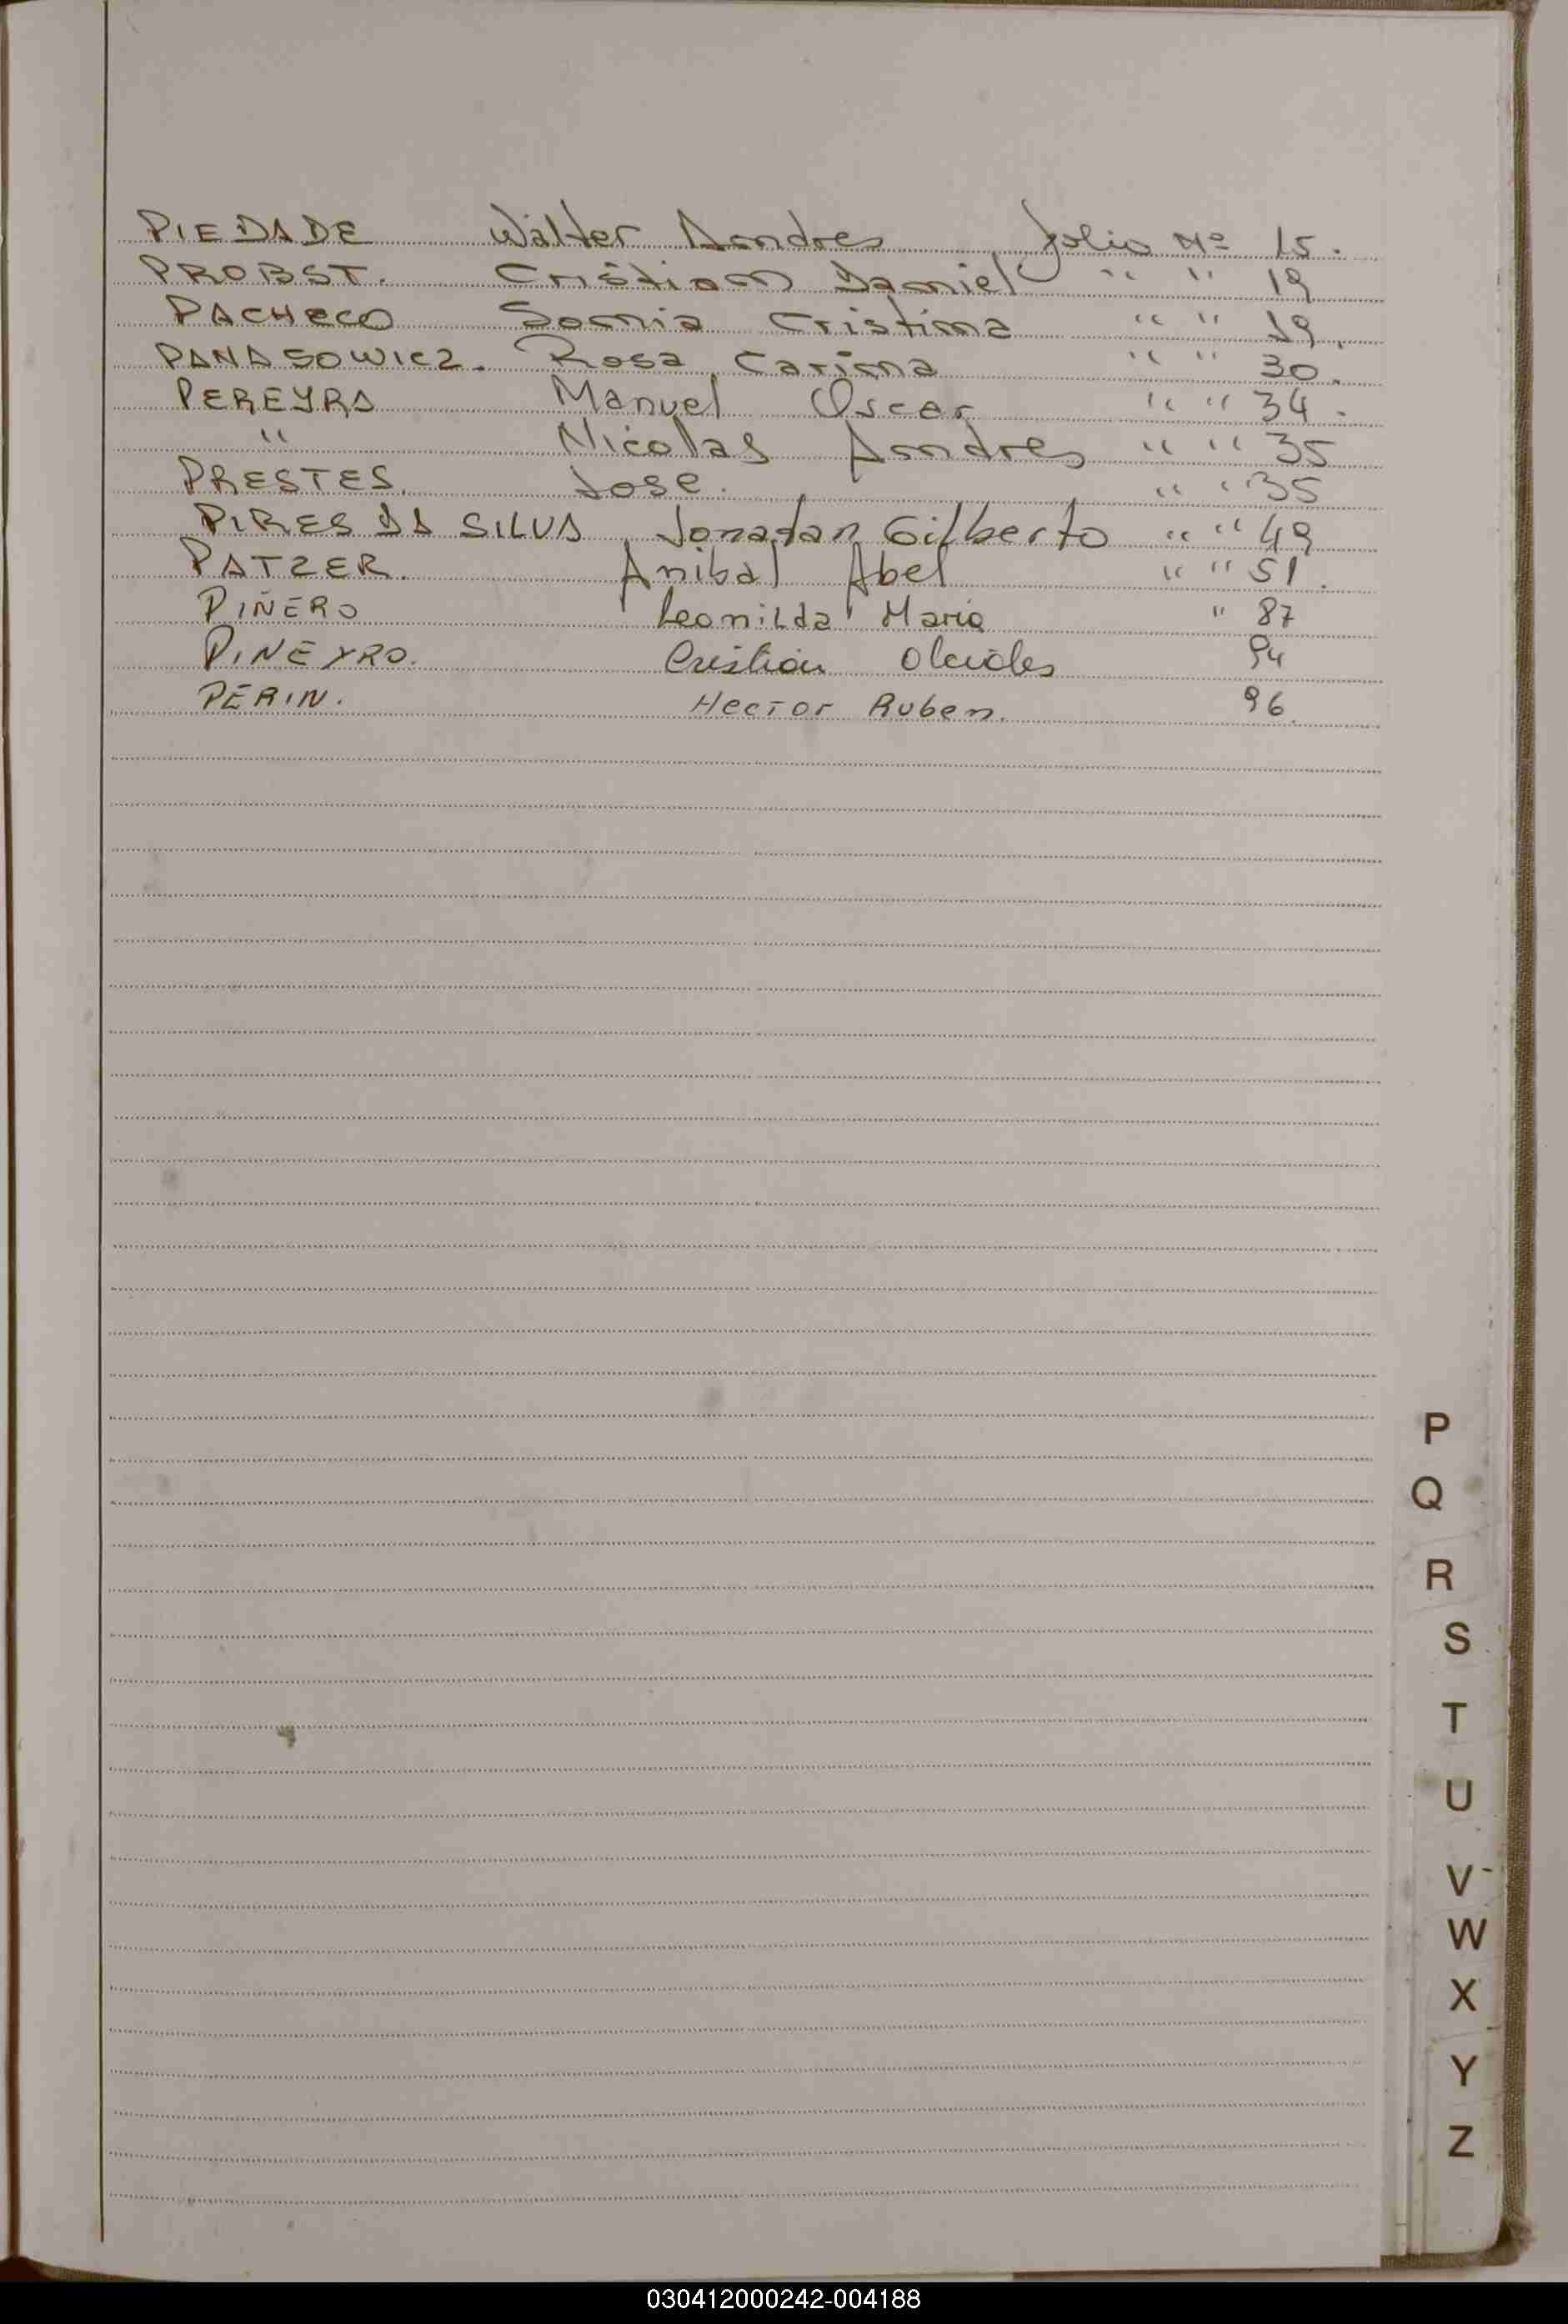 PIEDADE Walter Andres folio Nº 15.
PROBST. Cristian Daniel " " 19
PACHECO Sonia Cristina " " 19.
PANASOWICZ. Rosa Carina " " 30.
PEREYRA Manuel Oscar " " 34.
" Nicolas Andres " " 35
PRESTES. Jose. " " 35
PIRES DA SILVA Jonatan Gilberto " " 49
PATZER. Anibal Abel " " 51.
PIÑERO Leonilda Maria " 87
PINEYRO. Cristian Olcides 94
PERIN. Hector Ruben. 96.
P
Q
R
S
T
U
V
W
X
Y
Z
030412000242-004188